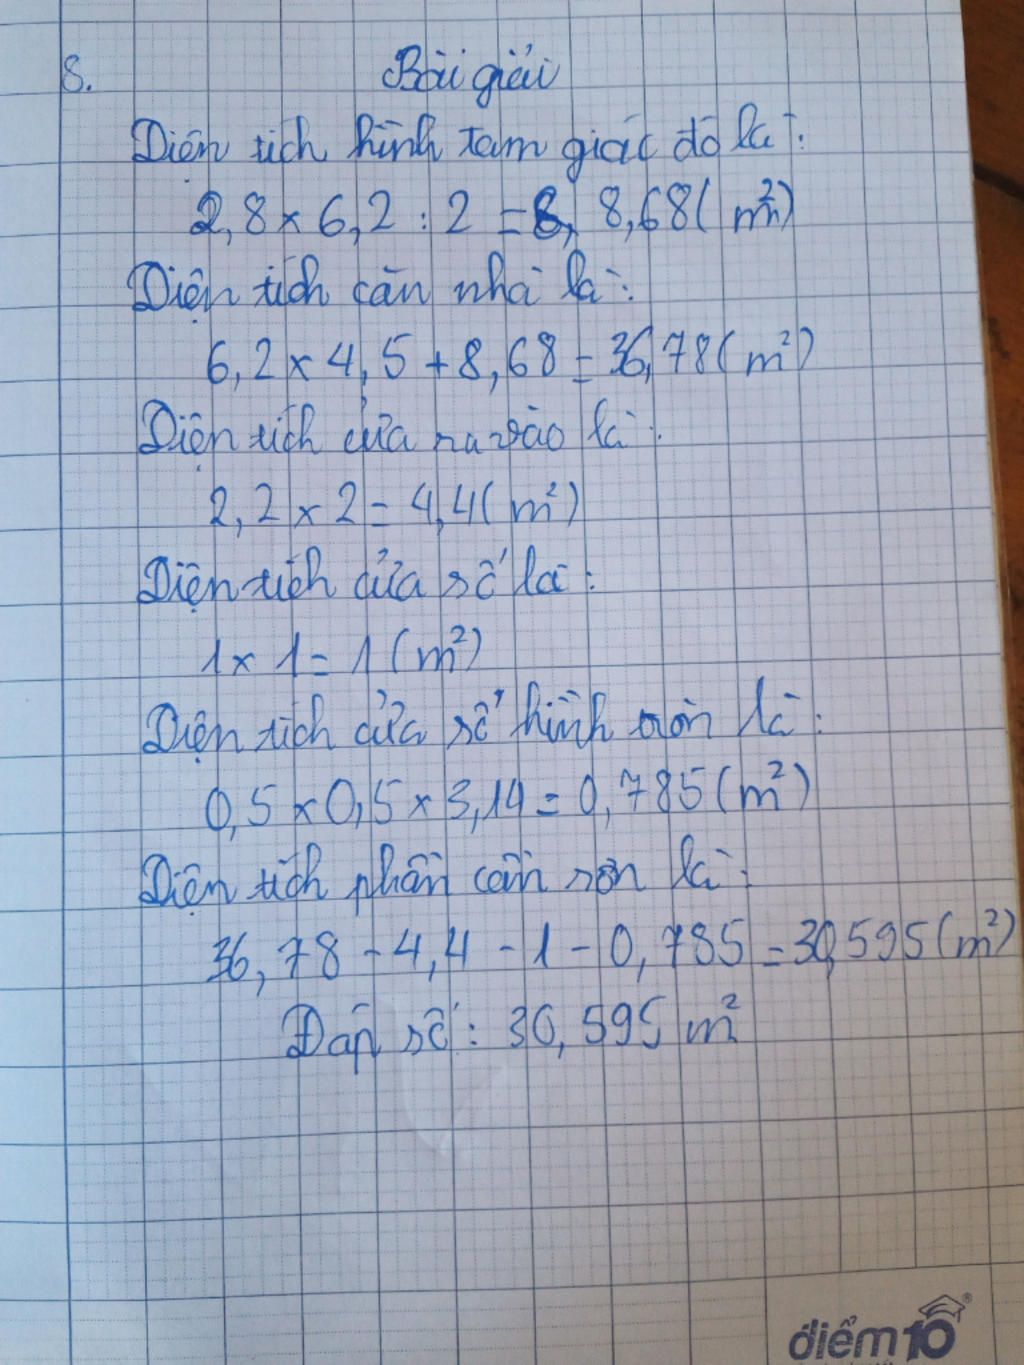 8. Bài giải
Diện tích hình tam giác đó là:
2,8 × 6,2 : 2 = 8,68 (m²)
Diện tích căn nhà là:
6,2 × 4,5 + 8,68 = 36,78 (m²)
Diện tích cửa ra vào là:
2,2 × 2 = 4,4 (m²)
Diện tích cửa sổ là:
1 × 1 = 1 (m²)
Diện tích cửa sổ hình tròn là:
0,5 × 0,5 × 3,14 = 0,785 (m²)
Diện tích phần cần sơn là:
36,78 - 4,4 - 1 - 0,785 = 30,595 (m²)
Đáp số: 30,595 m²
điểm10®